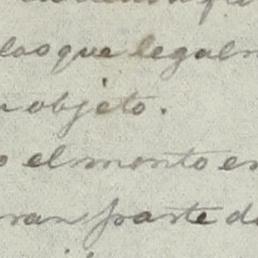 las que legalm
objeto.
el monto en
ran parte de